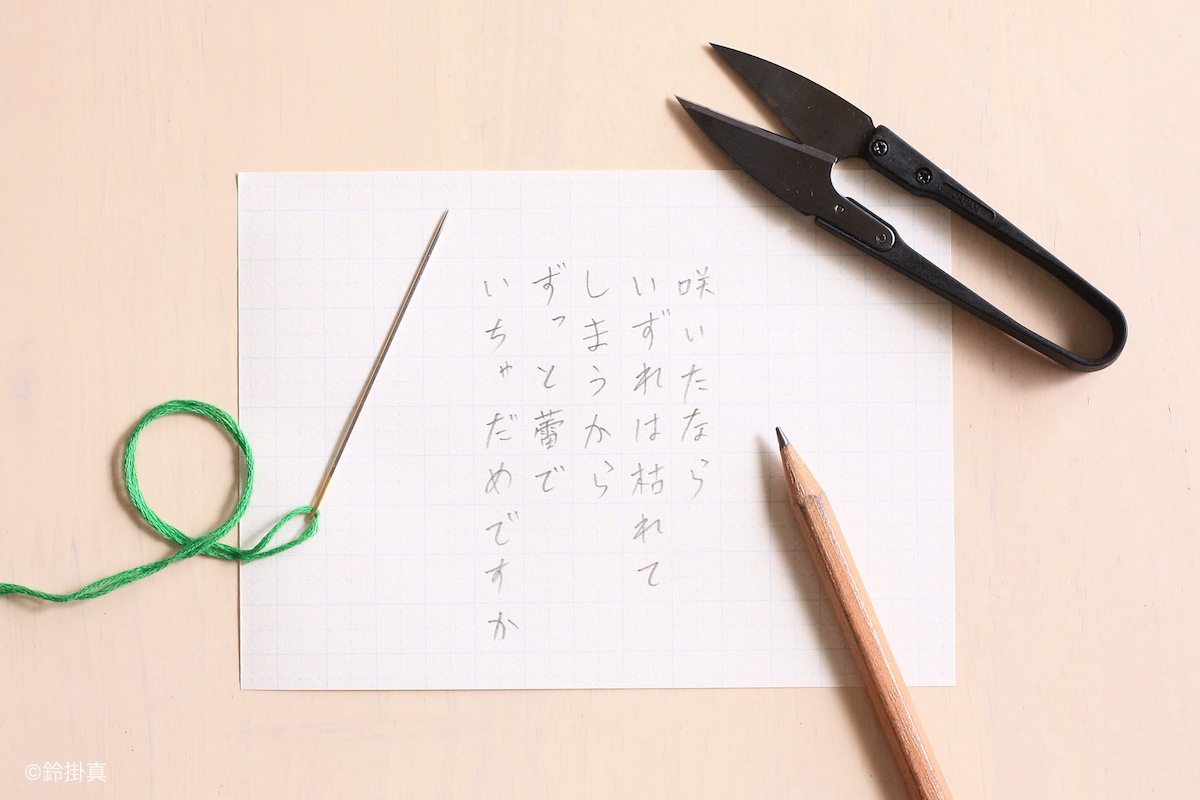 咲いたなら
いずれは枯れて
しまうから
ずっと蕾で
いちゃだめですか
JAPAN
©鈴掛真